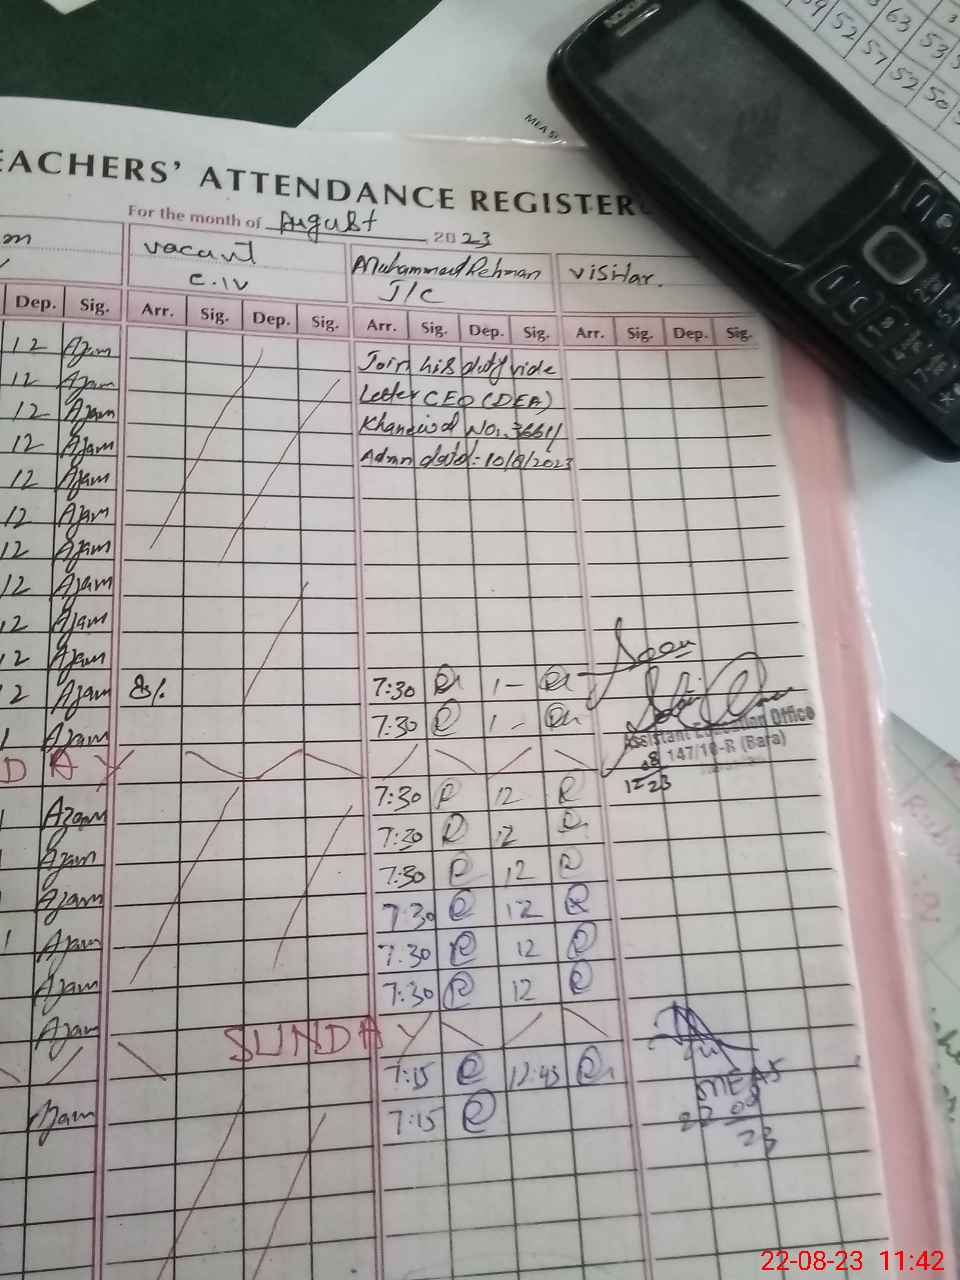 NOKIA
63 53
52 57 52 50
MEA
EACHERS' ATTENDANCE REGISTER
For the month of August 2023
m
vacant
C.IV
Muhammad Rehman
J/C
Visitar.
Dep. Sig. Arr. Sig. Dep. Sig. Arr. Sig. Dep. Sig. Arr. Sig. Dep. Sig.
12 Ajam Join his duty vide
12 Ajam Letter CEO (DEA)
12 Ajam Khanewal No. 3661/
12 Ajam Admn dated: 10/8/2023
12 Ajam
12 Ajam
12 Ajam
12 Ajam
12 Ajam
12 Ajam
12 Ajam 7:30 1 -
1 Ajam 7:30 1 -
Seen
Assistant Education Office
147/10-R (Bara)
12 08 23
DAY
Azam 7:30 R 12 R
Ajam 7:30 R 12 R
Ajam 7:30 R 12 R
1 Ajam 7:30 R 12 R
Ajam 7:30 R 12 R
Ajam 7:30 R 12 R
SUNDAY
7:15 R 12:45 R
Ajam 7:15 R
MEA
22 08 23
22-08-23 11:42